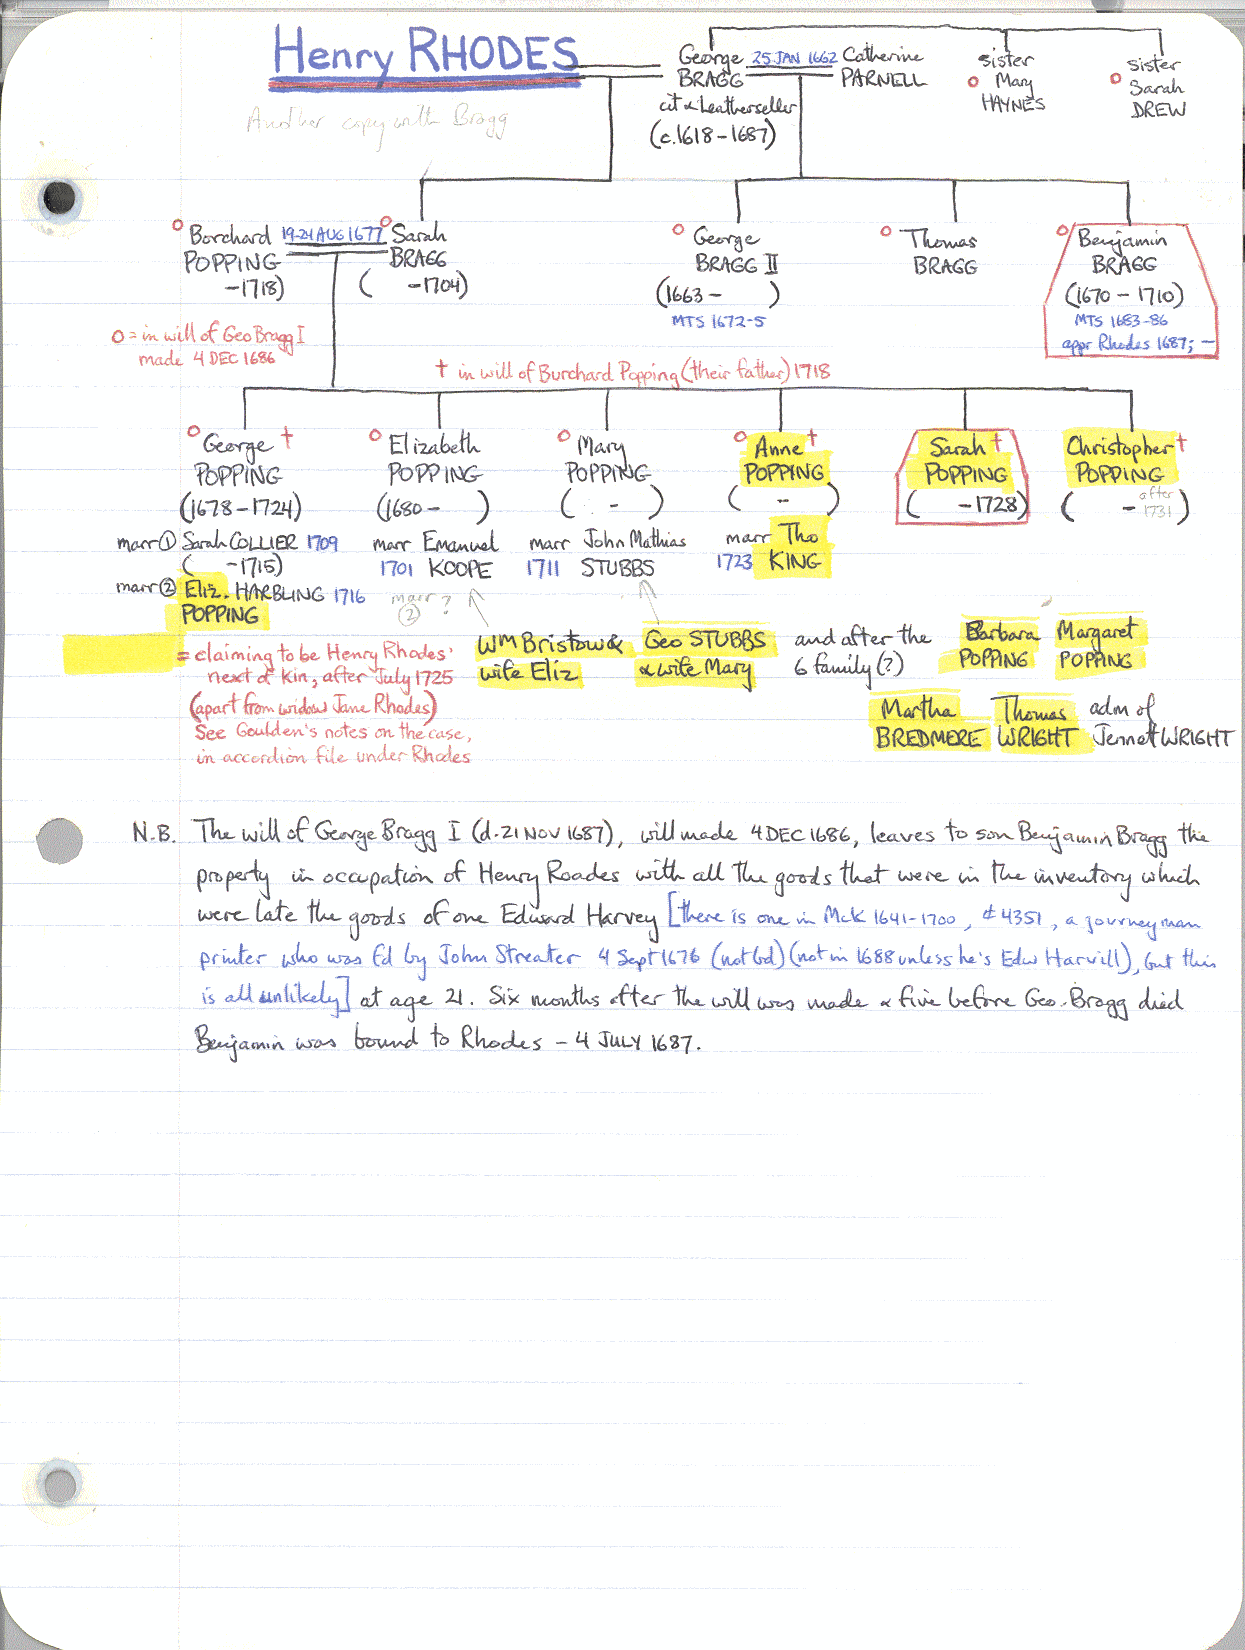 Henry RHODES
George 25 JAN 1662 Catherine
BRAGG PARNELL
cit & Leatherseller
(c.1618-1687)
sister
Mary
HAYNES
sister
Sarah
DREW
Another copy with Bragg
Borchard 19-24 AUG 1677 Sarah
POPPING BRAGG
-1718) ( -1704)
George
BRAGG II
(1663- )
MTS 1672-5
Thomas
BRAGG
Benjamin
BRAGG
(1670-1710)
MTS 1683-86
appr Rhodes 1687; -
O = in will of Geo Bragg I
made 4 DEC 1686
† in will of Burchard Popping (their father) 1718
George †
POPPING
(1678-1724)
marr ① Sarah COLLIER 1709
( -1715)
marr ② Eliz. HARBLING 1716
POPPING
Elizabeth
POPPING
(1680- )
marr Emanuel
1701 KOOPE
marr ?
②
Mary
POPPING
( - )
marr John Mathias
1711 STUBBS
Anne †
POPPING
( - )
marr Tho
1723 KING
Sarah †
POPPING
( -1728)
Christopher †
POPPING
( - after 1731 )
WM Bristow &
wife Eliz
Geo STUBBS
& wife Mary
and after the
6 family (?)
Barbara
POPPING
Margaret
POPPING
Martha
BREDMERE
Thomas
WRIGHT
adm of
Jennet WRIGHT
= claiming to be Henry Rhodes'
next of kin, after July 1725
(apart from widow Jane Rhodes)
See Goulden's notes on the case,
in accordion file under Rhodes
N.B. The will of George Bragg I (d. 21 NOV 1687), will made 4 DEC 1686, leaves to son Benjamin Bragg the
property in occupation of Henry Roades with all the goods that were in the inventory which
were late the goods of one Edward Harvey [there is one in McK 1641-1700, #4351, a journeyman
printer who was fd by John Streater 4 Sept 1676 (not bd) (not in 1688 unless he's Edw Harvill), but this
is all unlikely] at age 21. Six months after the will was made & five before Geo. Bragg died
Benjamin was bound to Rhodes - 4 JULY 1687.